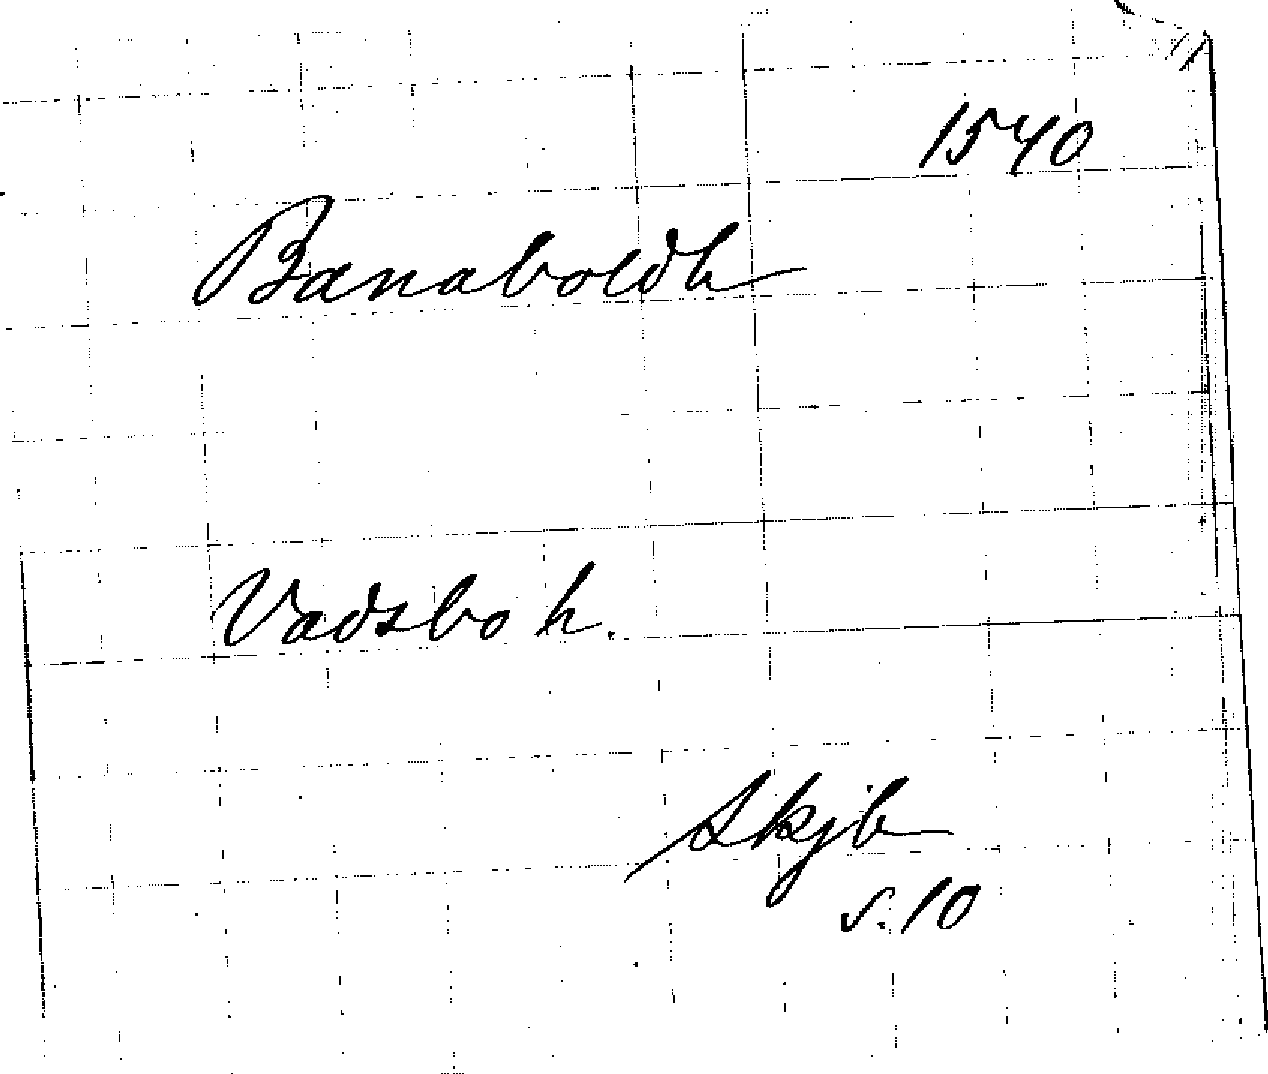 1540
Banaboldh
Vadsbo h.
Skjb
s. 10